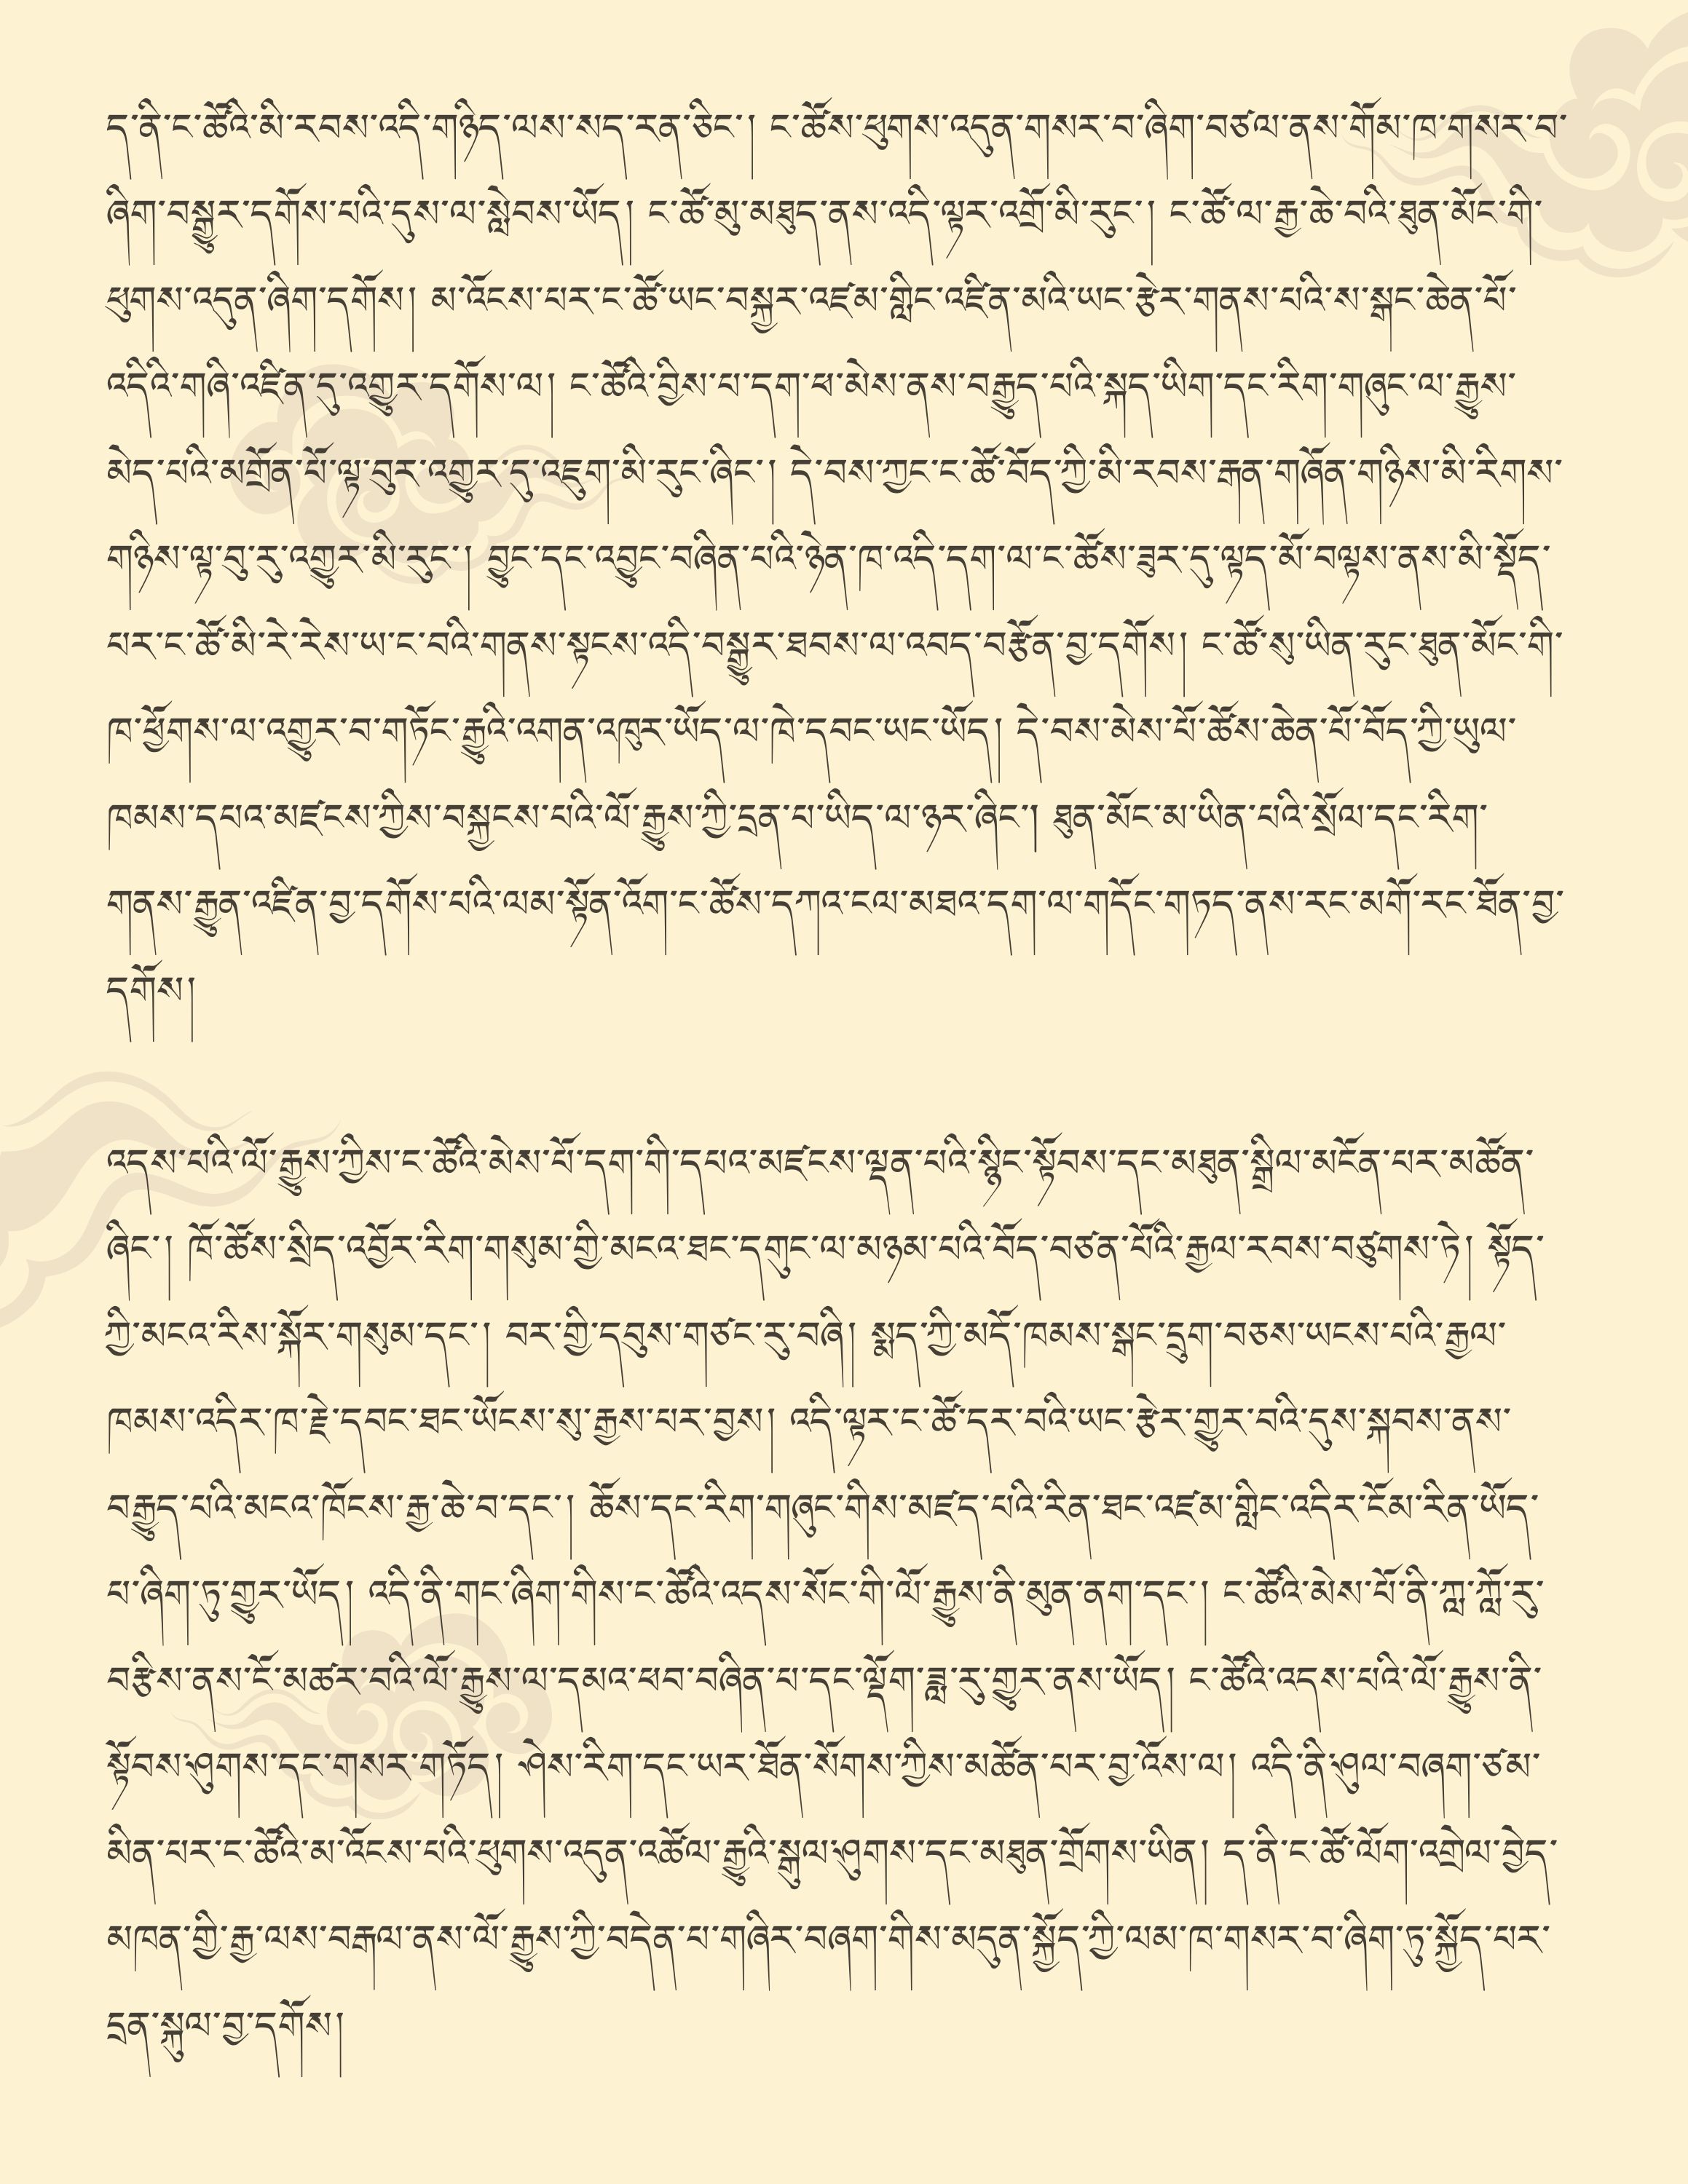 ད་ནི་ང་ཚོའི་མི་རབས་འདི་གཉིད་ལས་སད་རན་ཅིང་། ང་ཚོས་ཕུགས་འདུན་གསར་བ་ཞིག་བཙལ་ནས་གོམ་ཁ་གསར་བ་
ཞིག་བསྒྱུར་དགོས་པའི་དུས་ལ་སླེབས་ཡོད། ང་ཚོ་མུ་མཐུད་ནས་འདི་ལྟར་འགྲོ་མི་རུང་། ང་ཚོ་ལ་རྒྱ་ཆེ་བའི་ཐུན་མོང་གི་
ཕུགས་འདུན་ཞིག་དགོས། མ་འོངས་པར་ང་ཚོ་ཡང་བསྐྱར་འཛམ་གླིང་འཛིན་མའི་ཡང་རྩེར་གནས་པའི་ས་སྒང་ཆེན་པོ་
འདིའི་གཞི་འཛིན་དུ་འགྱུར་དགོས་ལ། ང་ཚོའི་བྱིས་པ་དག་ཕ་མེས་ནས་བརྒྱུད་པའི་སྐད་ཡིག་དང་རིག་གཞུང་ལ་རྒྱུས་
མེད་པའི་མགྲོན་པོ་ལྟ་བུར་འགྱུར་དུ་འཇུག་མི་རུང་ཞིང་། དེ་བས་ཀྱང་ང་ཚོ་བོད་ཀྱི་མི་རབས་རྒན་གཞོན་གཉིས་མི་རིགས་
གཉིས་ལྟ་བུ་རུ་འགྱུར་མི་རུང་། བྱུང་དང་འབྱུང་བཞིན་པའི་ཉེན་ཁ་འདི་དག་ལ་ང་ཚོས་ཟུར་དུ་ལྟད་མོ་བལྟས་ནས་མི་སྡོད་
པར་ང་ཚོ་མི་རེ་རེས་ཡ་ང་བའི་གནས་སྟངས་འདི་བསྒྱུར་ཐབས་ལ་འབད་བརྩོན་བྱ་དགོས། ང་ཚོ་སུ་ཡིན་རུང་ཐུན་མོང་གི་
ཁ་ཕྱོགས་ལ་འགྱུར་བ་གཏོང་རྒྱུའི་འགན་འཁུར་ཡོད་ལ་ཁེ་དབང་ཡང་ཡོད། དེ་བས་མེས་པོ་ཚོས་ཆེན་པོ་བོད་ཀྱི་ཡུལ་
ཁམས་དཔའ་མཛངས་ཀྱིས་བསྐྱངས་པའི་ལོ་རྒྱུས་ཀྱི་དྲན་པ་ཡིད་ལ་ཉར་ཞིང་། ཐུན་མོང་མ་ཡིན་པའི་སྲོལ་དང་རིག་
གནས་རྒྱུན་འཛིན་བྱ་དགོས་པའི་ལམ་སྟོན་འོག་ང་ཚོས་དཀའ་ངལ་མཐའ་དག་ལ་གདོང་གཏད་ནས་རང་མགོ་རང་ཐོན་བྱ་
དགོས།
འདས་པའི་ལོ་རྒྱུས་ཀྱིས་ང་ཚོའི་མེས་པོ་དག་གི་དཔའ་མཛངས་ལྡན་པའི་སྙིང་སྟོབས་དང་མཐུན་སྒྲིལ་མངོན་པར་མཚོན་
ཞིང་། ཁོ་ཚོས་སྲིད་འབྱོར་རིག་གསུམ་གྱི་མངའ་ཐང་དགུང་ལ་མཉམ་པའི་བོད་བཙན་པོའི་རྒྱལ་རབས་བཙུགས་ཏེ། སྟོད་
ཀྱི་མངའ་རིས་སྐོར་གསུམ་དང་། བར་གྱི་དབུས་གཙང་རུ་བཞི། སྨད་ཀྱི་མདོ་ཁམས་སྒང་དྲུག་བཅས་ཡངས་པའི་རྒྱལ་
ཁམས་འདིར་ཁ་རྗེ་དབང་ཐང་ཡོངས་སུ་རྒྱས་པར་བྱས། འདི་ལྟར་ང་ཚོ་དར་བའི་ཡང་རྩེར་གྱུར་བའི་དུས་སྐབས་ནས་
བརྒྱུད་པའི་མངའ་ཁོངས་རྒྱ་ཆེ་བ་དང་། ཆོས་དང་རིག་གཞུང་གིས་མཛད་པའི་རིན་ཐང་འཛམ་གླིང་འདིར་ངོམ་རིན་ཡོད་
པ་ཞིག་ཏུ་གྱུར་ཡོད། འདི་ནི་གང་ཞིག་གིས་ང་ཚོའི་འདས་སོང་གི་ལོ་རྒྱུས་ནི་མུན་ནག་དང་། ང་ཚོའི་མེས་པོ་ནི་ཀླ་ཀློ་རུ་
བརྩིས་ནས་ངོ་མཚར་བའི་ལོ་རྒྱུས་ལ་དམའ་ཕབ་བཞིན་པ་དང་ལྡོག་ཟླ་རུ་གྱུར་ནས་ཡོད། ང་ཚོའི་འདས་པའི་ལོ་རྒྱུས་ནི་
སྟོབས་ཤུགས་དང་གསར་གཏོད། ཤེས་རིག་དང་ཡར་ཐོན་སོགས་ཀྱིས་མཚོན་པར་བྱ་འོས་ལ། འདི་ནི་ཤུལ་བཞག་ཙམ་
མིན་པར་ང་ཚོའི་མ་འོངས་པའི་ཕུགས་འདུན་འཚོལ་རྒྱུའི་སྐུལ་ཤུགས་དང་མཐུན་གྲོགས་ཡིན། ད་ནི་ང་ཚོ་ལོག་འགྲེལ་བྱེད་
མཁན་གྱི་རྒྱ་ལས་བརྒལ་ནས་ལོ་རྒྱུས་ཀྱི་བདེན་པ་གཞིར་བཞག་གིས་མདུན་སྐྱོད་ཀྱི་ལམ་ཁ་གསར་བ་ཞིག་ཏུ་སྐྱོད་པར་
དྲན་སྐུལ་བྱ་དགོས།